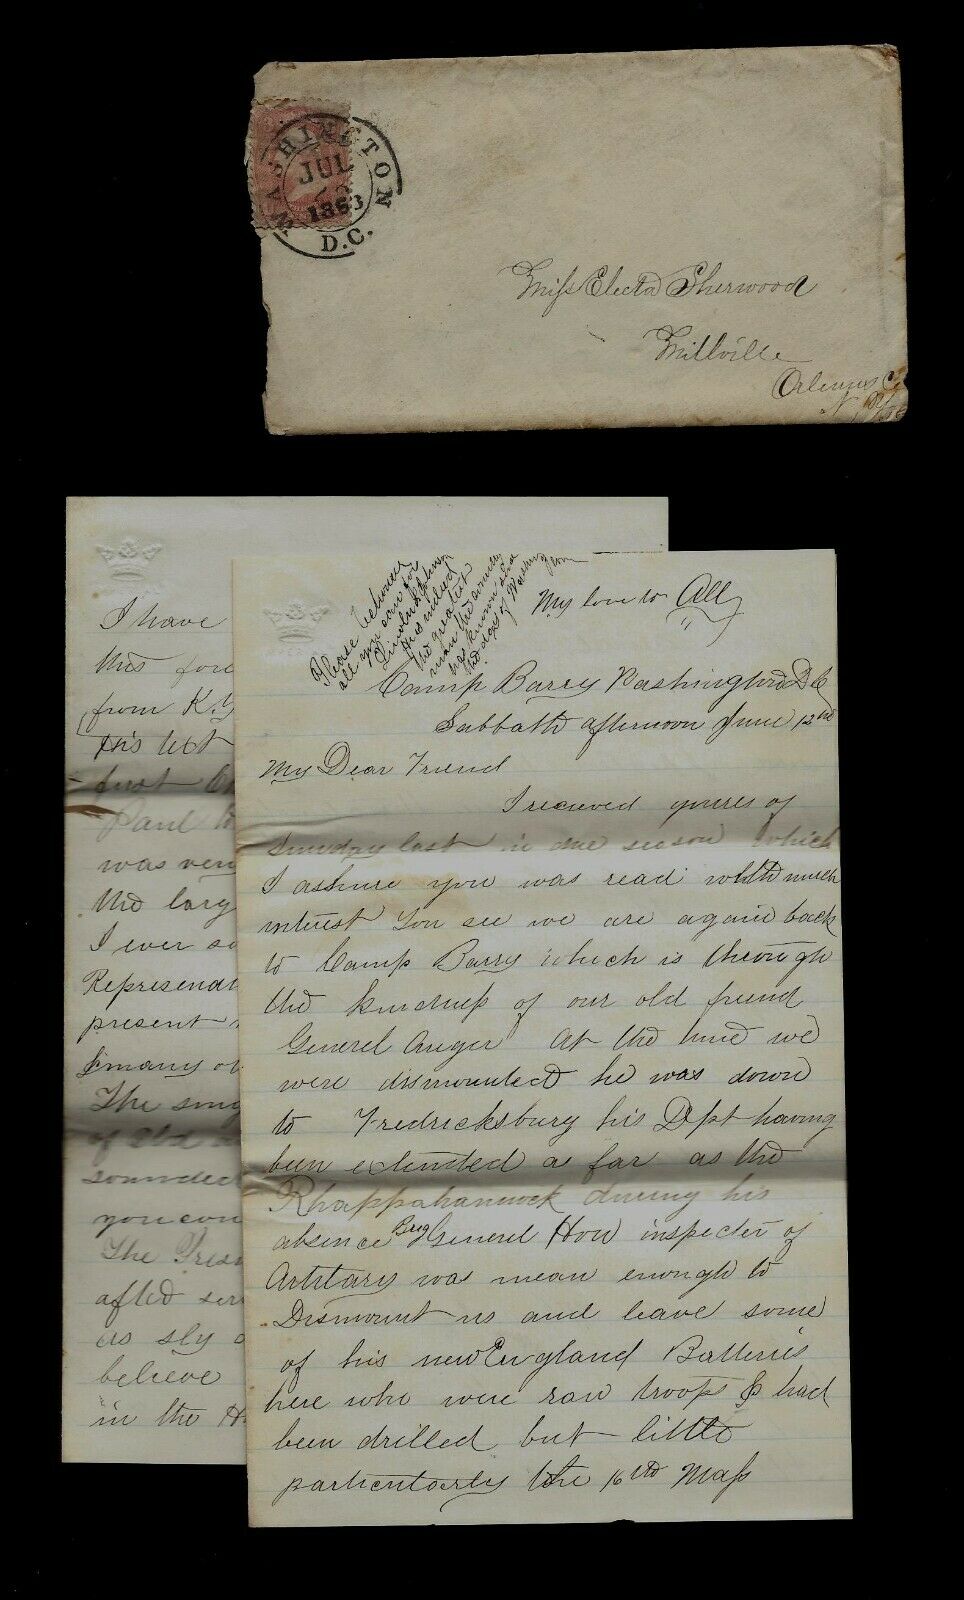 WASHINGTON
JUL
1863
D.C.
Miss Electa Sherwood
Millville
Orleans Co
N. York
Please Electioneer
all you can for
Lincoln & Johnson
He is indeed
the greatest
man the country
has known since
the days of Washing
ton
My love to All
Camp Barry Washington D C
Sabbath afternoon June 12th
My Dear Friend
I recieved yours of
Sunday last in due season which
I asshure you was read with much
interest You see we are again back
to Camp Barry which is through
the kindness of our old friend
General Auger At the time we
were dismounted he was down
to Fredricksburg his Dpt having
been extended a far as the
Rhappahannock during his
absence Brig General How inspecter of
Artilary was mean enough to
Dismount us and leave some
of his new England Batteries
here who were raw troops & had
been drilled but little
particularly the 16th Mass
I have
this for
from K.Y
His let
first
Paul
was very
the larg
I ever s
Represend
present
& many ot
The sing
of Old
sounded
you con
The Pres
afted ser
as sly
believe
in the H